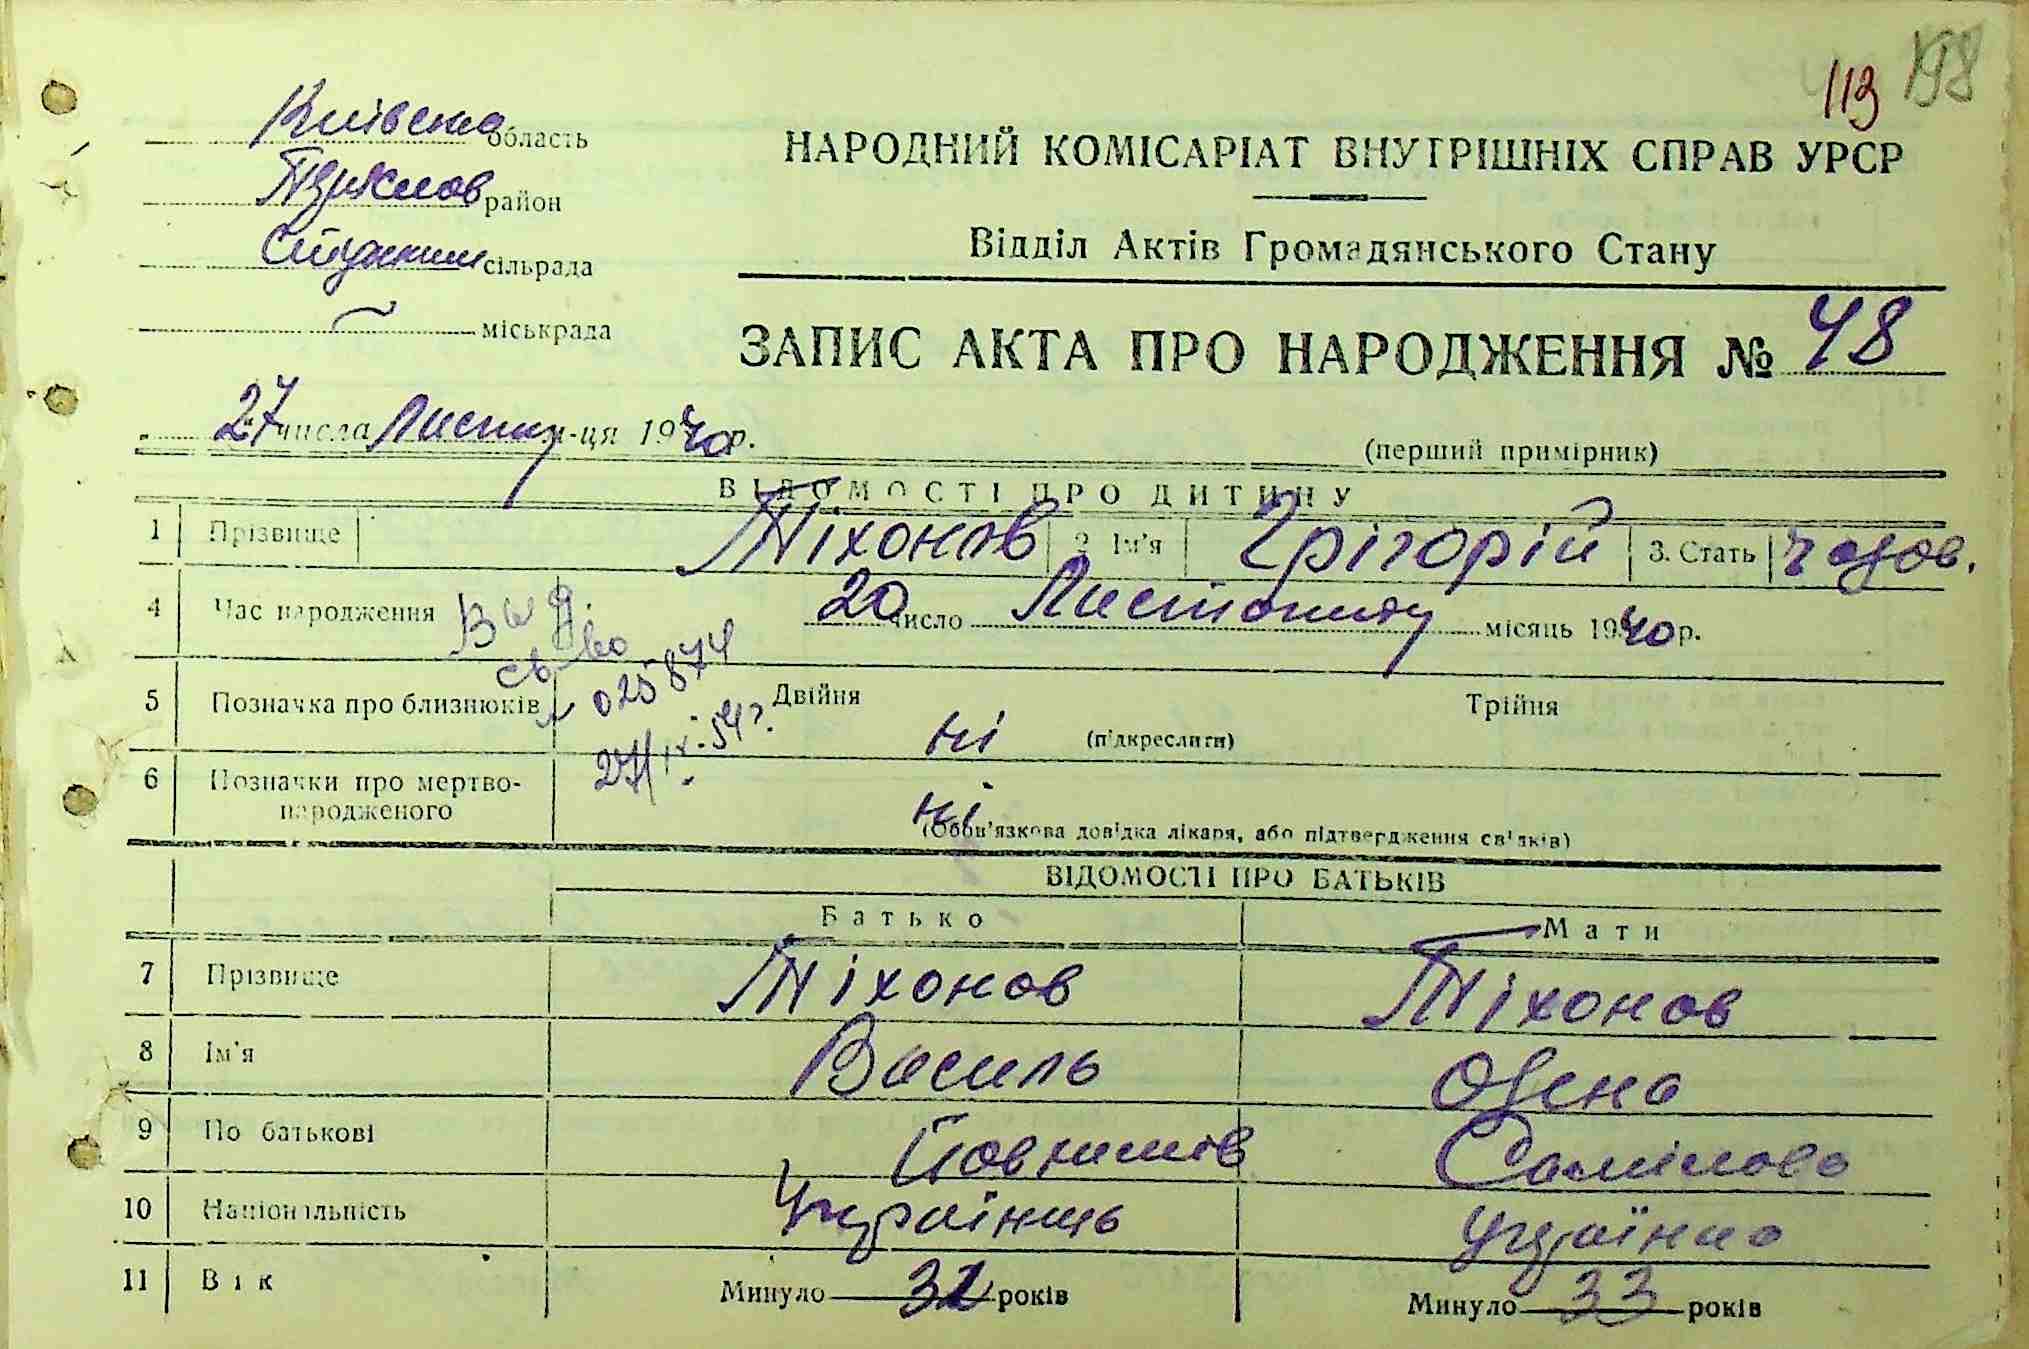 113 198
Київська область
район
сільрада
міськрада
НАРОДНИЙ КОМІСАРІАТ ВНУТРІШНІХ СПРАВ УРСР
Відділ Актів Громадянського Стану
ЗАПИС АКТА ПРО НАРОДЖЕННЯ № 48
27 числа Листоп м-ця 1940 р.
(перший примірник)
ВІДОМОСТІ ПРО ДИТИНУ
1 Прізвище Тіхонов 2 Ім'я Грігорій 3. Стать чолов.
4 Час народження 20 число Листопаду місяць 1940 р.
Выд. св-во
№ 025874
27/IX-54 г.
5 Позначка про близнюків Двійня Трійня
ні (підкреслити)
6 Позначки про мертво-
народженого ні
(Обов'язкова довідка лікаря, або підтвердження свідків)
ВІДОМОСТІ ПРО БАТЬКІВ
Батько Мати
7 Прізвище Тіхонов Тіхонов
8 Ім'я Василь Олена
9 По батькові
10 Національність Українець Українка
11 Вік Минуло 32 років Минуло 33 років